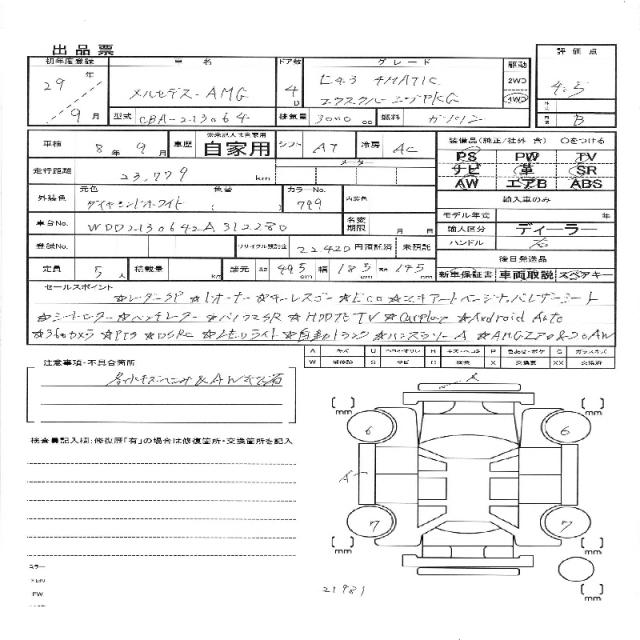 出品票
初年度登録 車名 ドア数 グレード 駆動 評価点
29年 メルセデス・AMG 4D E43 4MATIC 2WD 4.5
9月 エクスクルーシブPKG 4WD
型式 CBA-213064 排気量 3000cc 燃料 ガソリン B
車検 8年9月 車歴 自家用 シフト AT 冷房 AC
装備品(純正/社外 含) ○をつける
PS PW TV
ナビ 革 SR
AW エアB ABS
走行距離 23,779km メーター
外装色 元色 ダイヤモンドホワイト 色替 カラーNo. 799 内装色
輸入車のみ
モデル年式 年
車台No. WDD2130642A312280 名変期限 月 日
輸入区分 ディーラー
ハンドル 右
登録No. リサイクル預託金 22420円 預託済 未預託
後日発送品
定員 5人 積載量 kg 諸元 長さ 495cm 幅 185cm 高さ 145cm
新車保証書 車両取説 スペアキー
セールスポイント
☆レーダーSP ☆1オーナー ☆キーレスゴー ☆Eco
☆シートヒーター ☆ベンチレーター ☆パノラマSR ☆HDDナビTV ☆Carplay ☆Android Auto
☆360カメラ ☆PTS ☆DSRC ☆LEDライト ☆自動トランク ☆AMG20AW
注意事項・不具合箇所
検査員記入欄:修復歴「有」の場合は修復箇所・交換箇所を記入
A キズ U H P C
W S X 交換要 XX 交換済
X
[ ] mm [ ] mm
6 6
A
7 7
[ ] mm [ ] mm
21981